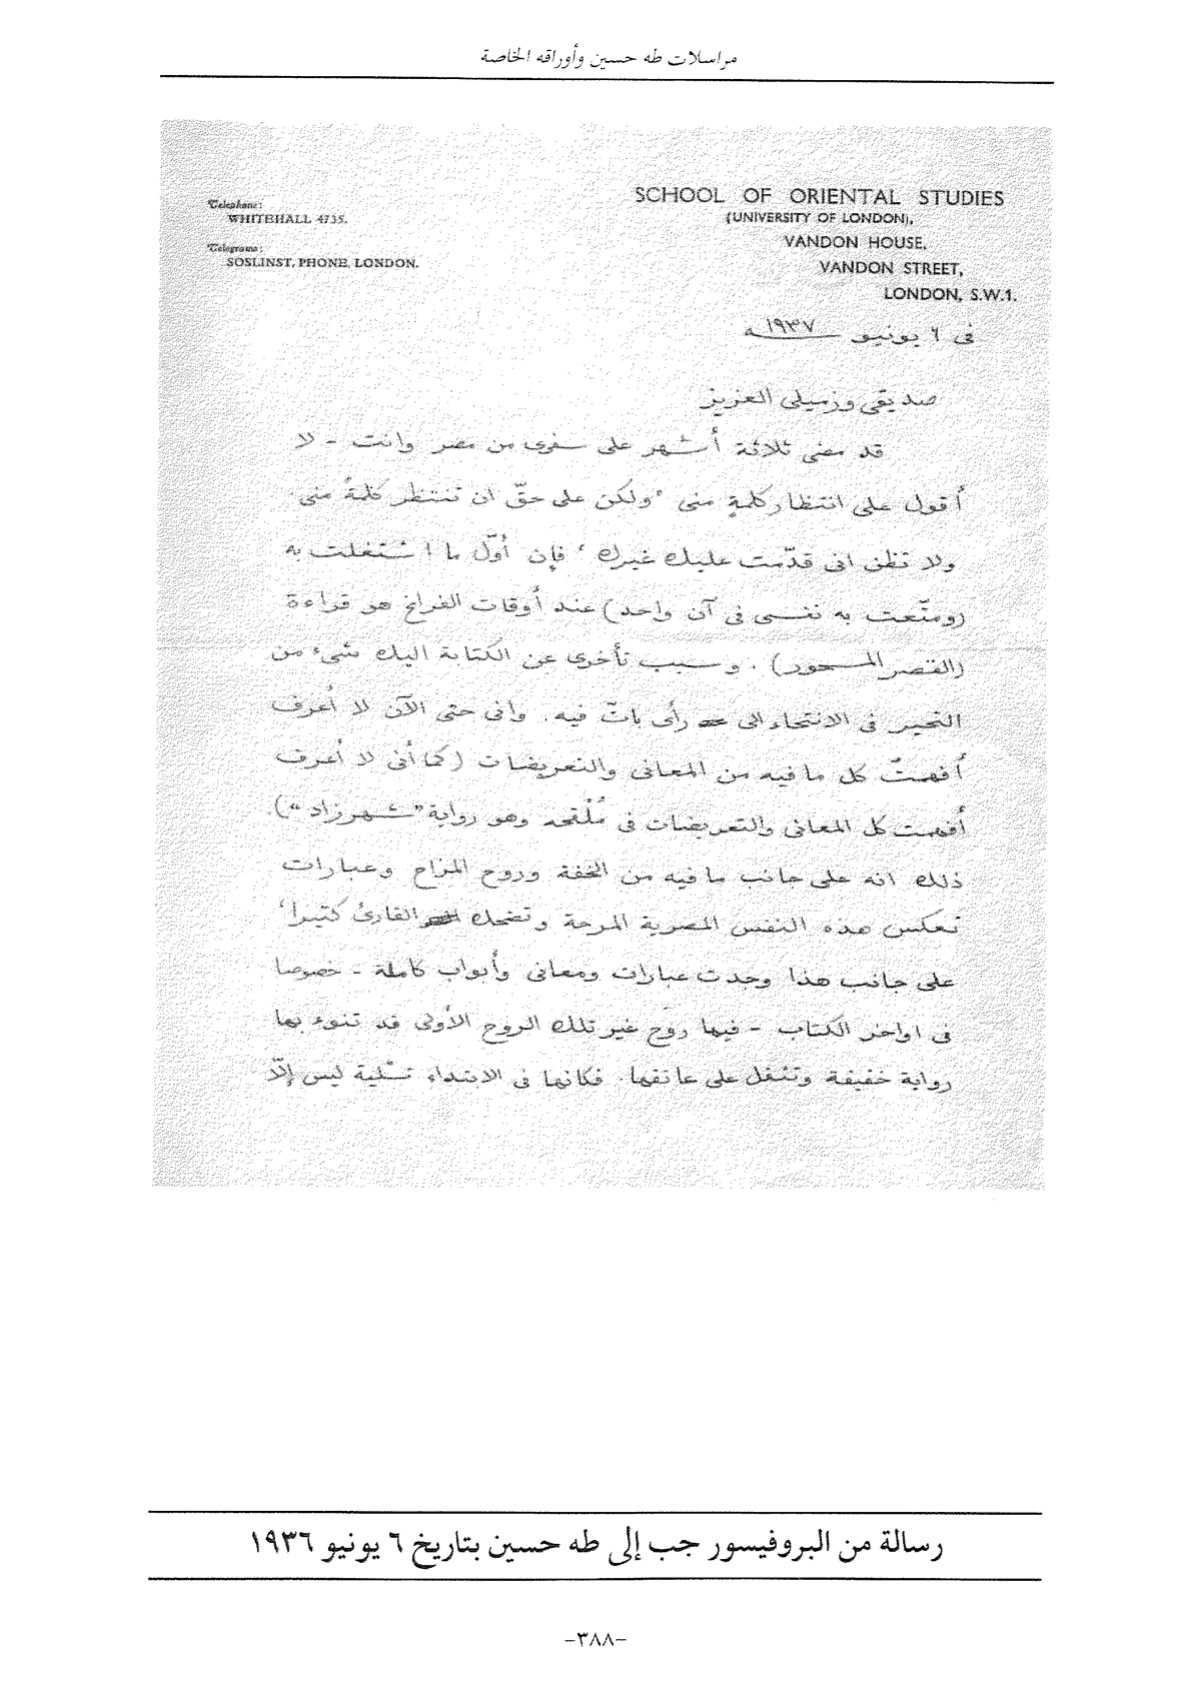 مراسلات طه حسين وأوراقه الخاصة
Telephone:
WHITEHALL 4735.
Telegrams:
SOSLINST, PHONE, LONDON.
SCHOOL OF ORIENTAL STUDIES
(UNIVERSITY OF LONDON),
VANDON HOUSE,
VANDON STREET,
LONDON, S.W.1.
فى ٦ يونيو ١٩٣٧ م
صديقى وزميلى العزيز
قد مضى ثلاثة أشهر على سفرى من مصر وانت - لا
أقول على انتظار كلمةٍ منى، ولكن على حقّ ان تنتظر كلمةً منى.
ولا تظن انى قدّمت عليك غيرك، فإن أوّل ما اشتغلت به
(ومتّعت به نفسى فى آن واحد) عند أوقات الفراغ هو قراءة
(القصر المسحور). وسبب تأخرى عن الكتابة اليك شىء من
التحير فى الانتحاء الى رأى باتّ فيه. وانى حتى الآن لا أعرف
أفهمتُ كل ما فيه من المعانى والتعريضات (كما أنى لا أعرف
أفهمت كل المعانى والتعريضات فى مُلْقحه وهو رواية "شهرزاد")
ذلك انه على جانب ما فيه من الخفة وروح المزاح وعبارات
تعكس هذه النفس المصرية المرحة وتضحك القارئ كثيرا،
على جانب هذا وجدت عبارات ومعانى وأبواب كاملة - خصوصا
فى اواخر الكتاب - فيها روح غير تلك الروح الأولى قد تنوء بها
رواية خفيفة وتثقل على عاتقها. فكانها فى الابتداء تسّلية ليس إلّا
رسالة من البروفيسور جب إلى طه حسين بتاريخ ٦ يونيو ١٩٣٦
-٣٨٨-